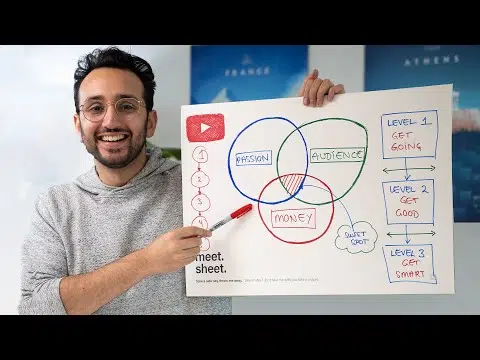 FRANCE
ATHENS
1
2
3
4
PASSION
AUDIENCE
MONEY
SWEET
SPOT
LEVEL 1
GET
GOING
LEVEL 2
GET
GOOD
LEVEL 3
GET
SMART
meet.
sheet.